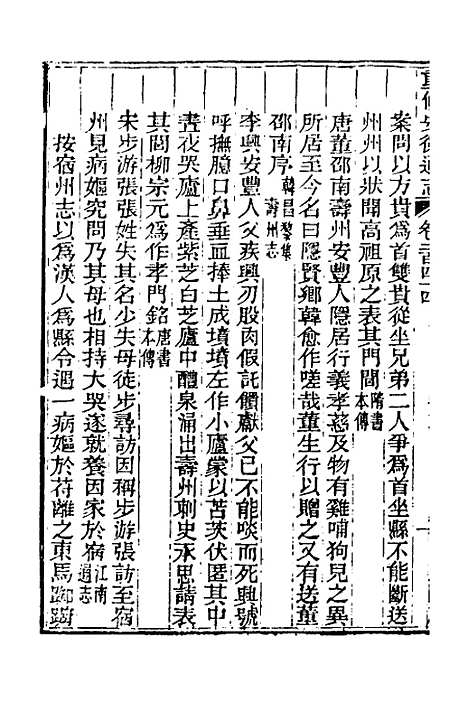 重修安徽通志 卷二百四十四
案問以方貴爲首雙貴從坐兄弟二人爭爲首坐縣不能斷送
州州以狀聞高祖原之表其門閭隋書本傳
唐董邵南壽州安豐人隱居行義孝慈及物有雞哺狗兒之異
所居至今名曰隱賢鄉韓愈作嗟哉董生行以贈之又有送董
邵南序韓昌黎集壽州志
李興安豐人父疾興刃股肉假託饋獻父已不能啖而死興號
呼撫臆口鼻垂血捧土成墳墳左作小廬蒙以苫茨伏匿其中
晝夜哭廬上產紫芝白芝廬中醴泉涌出壽州刺史承思請表
其閭柳宗元爲作孝門銘唐書本傳
宋步游張張姓失其名少失母徒步尋訪因稱步游張訪至宿
州見病嫗究問乃其母也相持大哭遂就養因家於宿江南通志
按宿州志以爲漢人爲縣令遇一病嫗於符離之東馬踟躕